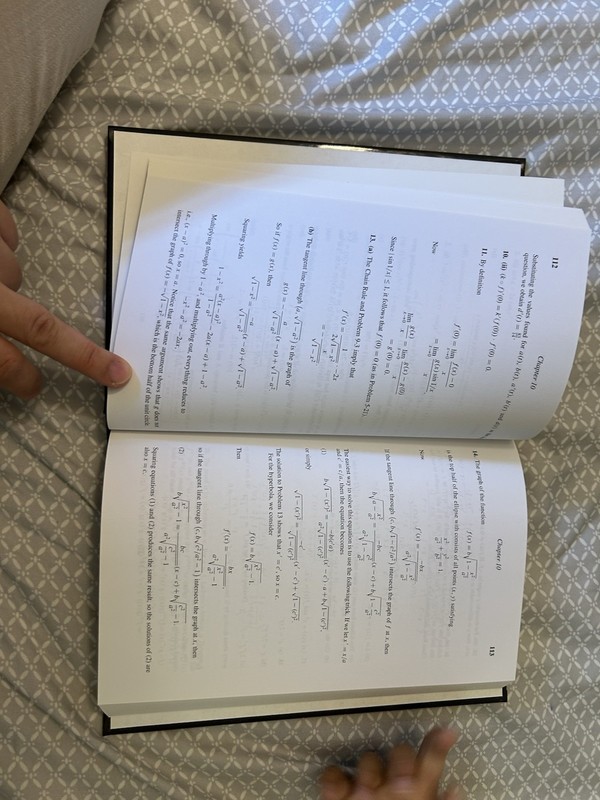 112
Chapter 10
Substituting the values found for
question, we obtain
10. (ii) (k ∘ f)'(0) = k'(f(0)) · f'(0) = 0.
11. By definition
f'(0) = lim f(x) − 0 / x
= lim g(x) sin 1/x / x
Now
lim g(x)/x = lim g(x) − g(0) / x
= g'(0) = 0.
Since | sin 1/x| ≤ 1, it follows that f'(0) = 0 (as in Problem 9-21).
13. (a) The Chain Rule and Problem 9-3 imply that
f'(x) = 1/(2√(1 − x²)) · −2x
= −x/√(1 − x²).
(b) The tangent line through (a, √(1 − a²)) is the graph of
g(x) = −a/√(1 − a²) (x − a) + √(1 − a²).
So if f(x) = g(x), then
√(1 − x²) = −a/√(1 − a²) (x − a) + √(1 − a²).
Squaring yields
1 − x² = a²(x − a)²/(1 − a²) − 2a(x − a) + 1 − a².
Multiplying through by 1 − a², and multiplying out, everything reduces to
−x² − a² = −2ax,
i.e., (x − a)² = 0, so x = a. Notice that the same argument shows that g does not
intersect the graph of f(x) = −√(1 − x²), which is the bottom half of the unit circle
Chapter 10
113
14. The graph of the function
f(x) = b√(1 − x²/a²)
is the top half of the ellipse with consists of all points (x, y) satisfying
x²/a² + y²/b² = 1.
Now
f'(x) = −bx / (a²√(1 − x²/a²))
If the tangent line through (c, b√(1 − c²/a²)) intersects the graph of f at x, then
The easiest way to solve this equation is to use the following trick. If we let x' = x/a
and c' = c/a, then the equation becomes
(1)
or simply
√(1 − (x')²) = −c'/√(1 − (c')²) (x' − c') + √(1 − (c')²).
The solution to Problem 13 shows that x' = c', so x = c.
For the hyperbola, we consider
f(x) = b√(x²/a² − 1).
Then
f'(x) = bx / (a²√(x²/a² − 1))
so if the tangent line through (c, b√(c²/a² − 1)) intersects the graph at x, then
(2) b√(x²/a² − 1) = bc/(a²√(c²/a² − 1)) (x − c) + b√(c²/a² − 1).
Squaring equations (1) and (2) produces the same result, so the solutions of (2) are
also x = c.